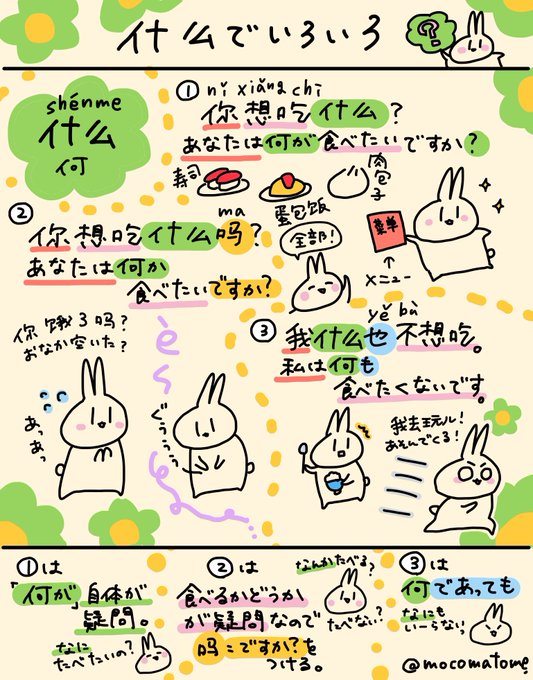 什么でいろいろ
?
shénme
什么
何
①nǐ xiǎng chī
你想吃什么?
あなたは何が食べたいですか?
寿司
蛋包饭
肉包子
②
ma
你想吃什么吗?
あなたは何か
食べたいですか?
全部!
菜単
↑
メニュー
你饿了吗?
おなか空いた?
あっあっ
è
ぐぅぅぅぅ
③
yě bù
我什么也不想吃。
私は何も
食べたくないです。
我去玩ル!
あそんでくる!
①は
「何が」自体が
疑問。
なに
たべたいの?
②は
食べるかどうか
が疑問なので
吗=ですか?を
つける。
なんかたべる?
たべない?
③は
何であっても
なにも
いーらないっ
@mocomatome